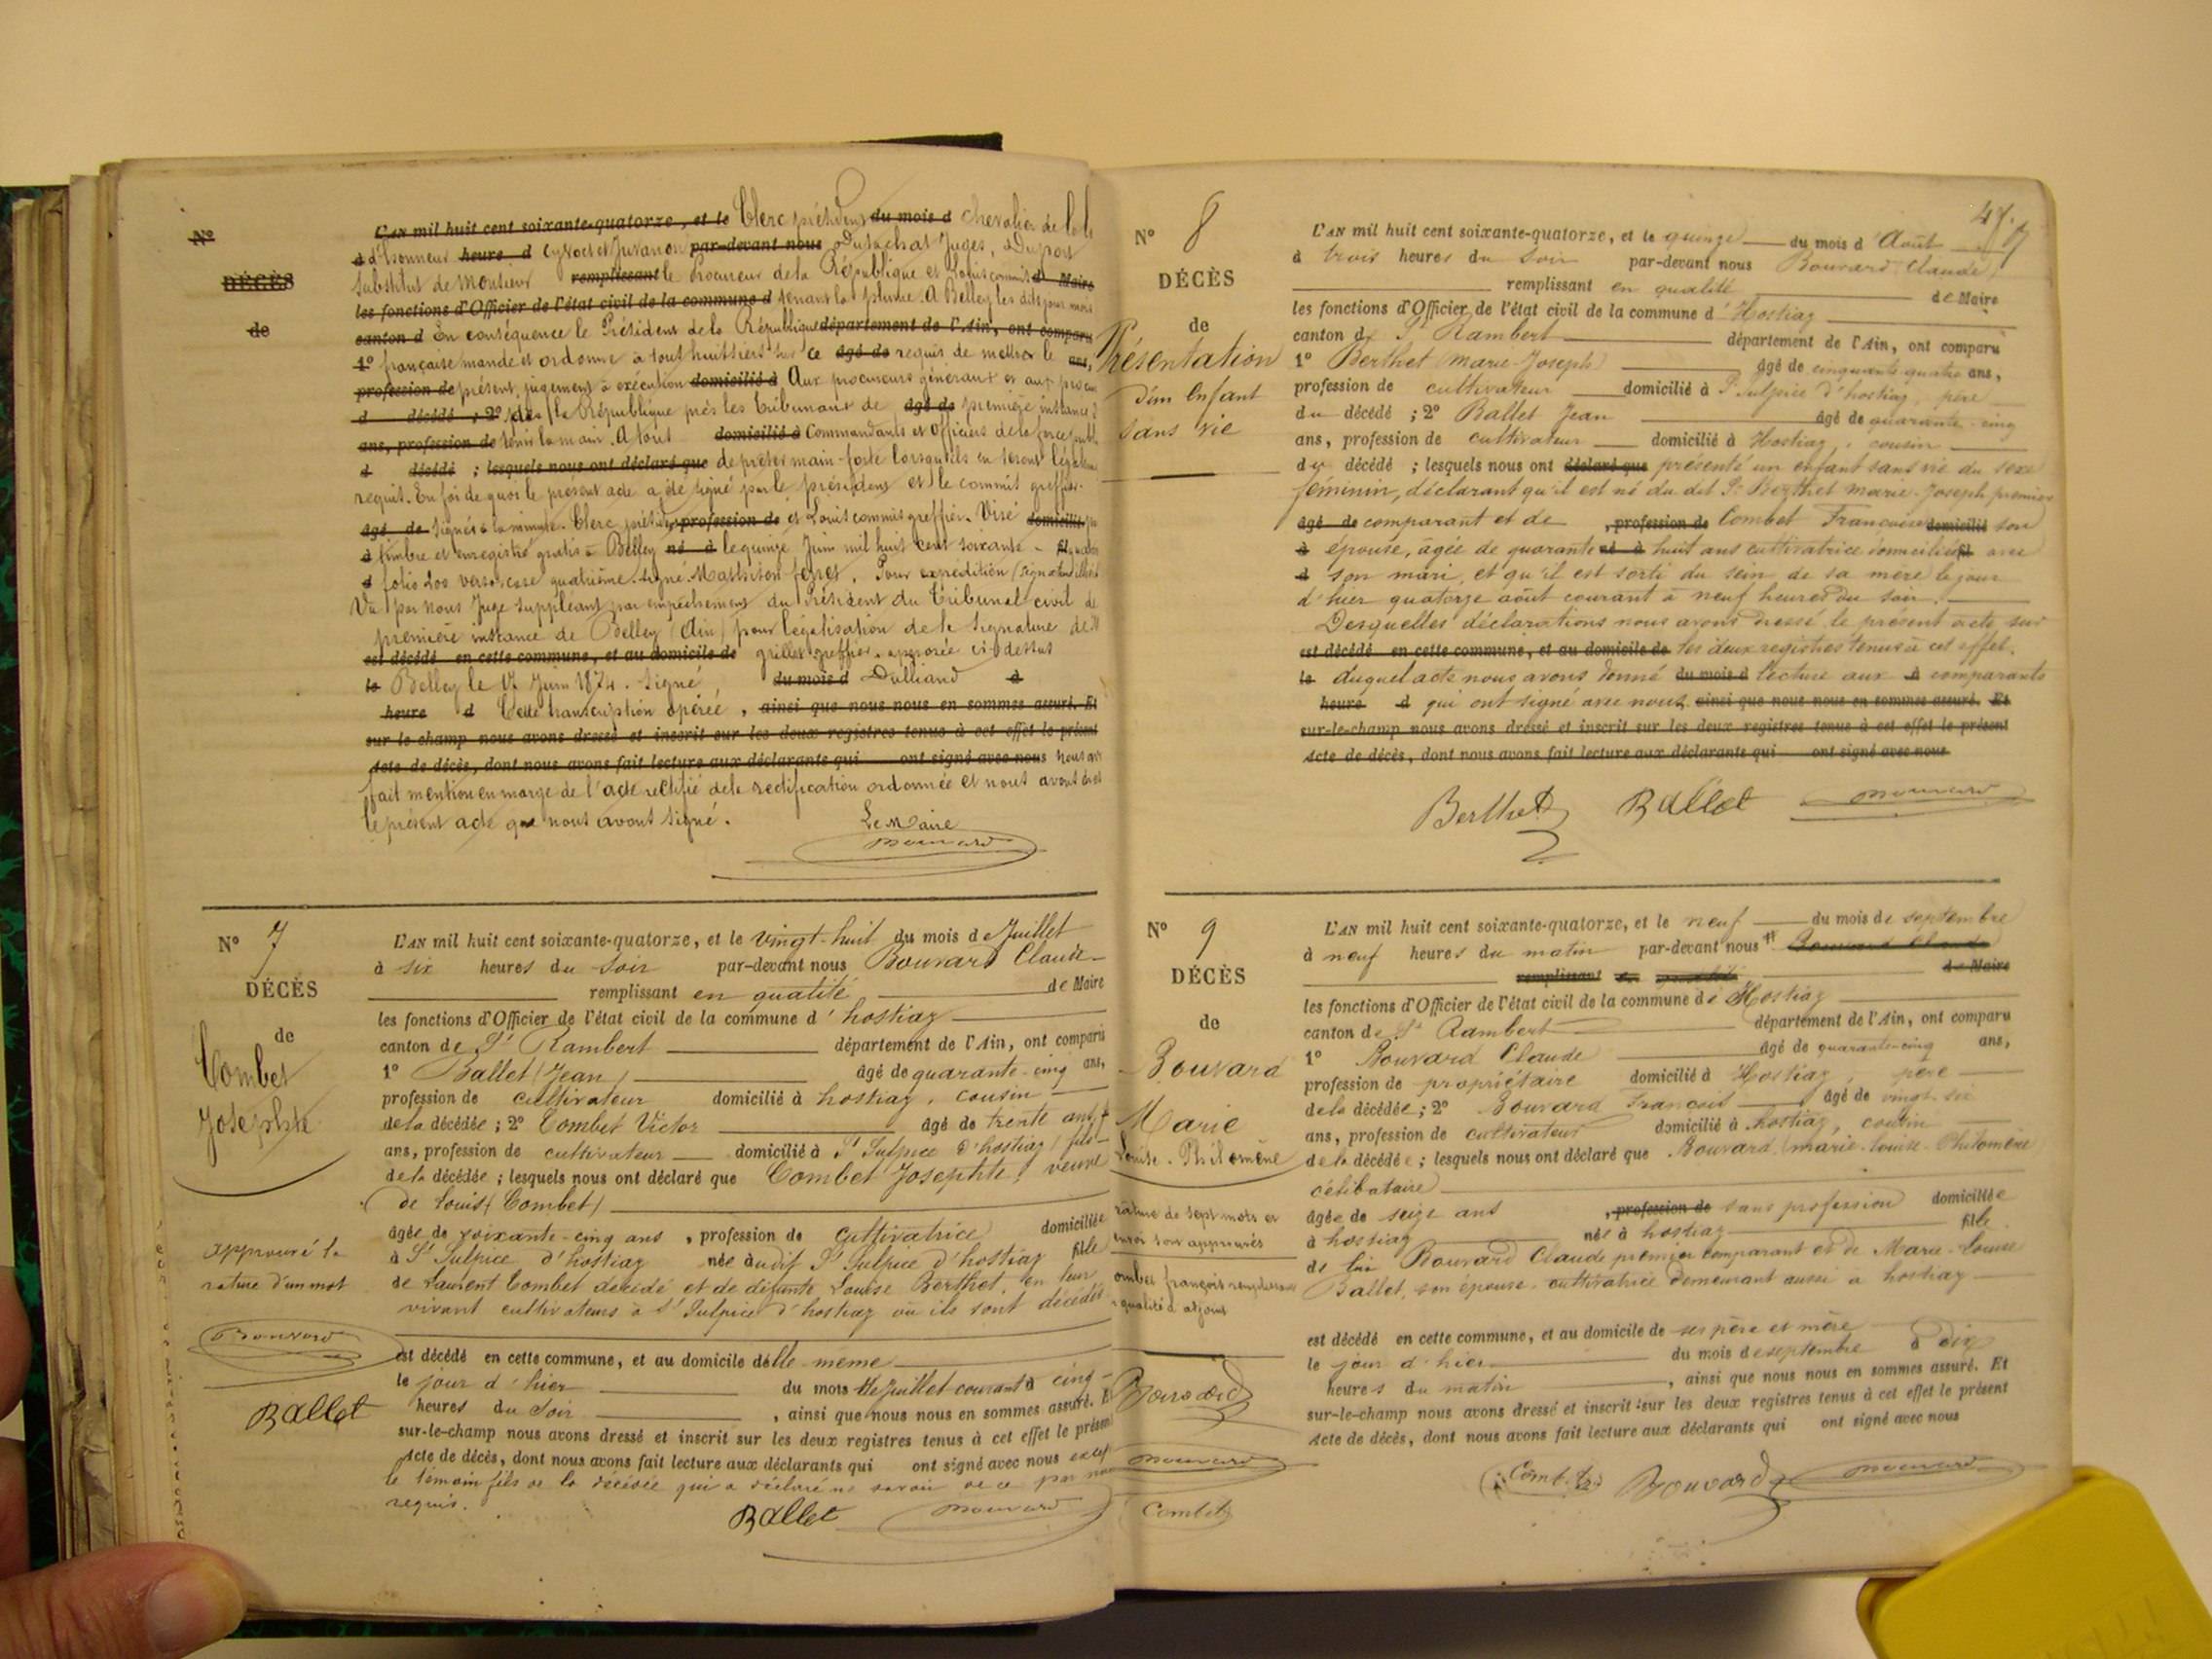 N°
DÉCÈS
de
L'AN mil huit cent soixante-quatorze, et le Clerc président du mois d chevalier de la
à d'honneur heure d Cyvoct et Juvanon par-devant nous Dutachat Juges, Duport
Substitut de Monsieur remplissant le Procureur de la République et Louis commis d Maire
les fonctions d'Officier de l'état civil de la commune d tenant la plume. A Belley les dits jour mois
canton d En conséquence le Président de la République département de l'Ain, ont comparu
1° française mande et ordonne à tout huissiers sur ce âgé de requis de mettre le ans,
profession de présent jugement à exécution domicilié à Aux procureurs généraux et aux
d décédé ; 2° de la République près les tribunaux de âgé de première instance
ans, profession de tenir la main. A tout domicilié à Commandants et Officiers de la force
d décédé ; lesquels nous ont déclaré que de prêter main-forte lorsqu'ils en seront
requis. En foi de quoi le présent acte a été signé par le président et le commis greffier.
âgé de Signés à la minute. Clerc président profession de et Louis commis greffier. Visé domicilié
à timbre et enregistré gratis à Belley né à le quinze Juin mil huit cent soixante -
d folio 200 verso case quatrième. signé Pour expédition
Vu par nous Juge suppléant par empêchement du Président du Tribunal civil de
première instance de Belley (Ain) pour légalisation de la signature de M
est décédé en cette commune, et au domicile de grillet greffier, apposée ci-dessus
le Belley le 17 Juin 1874. Signé du mois d Dulliand à
heure d Cette transcription opérée, ainsi que nous nous en sommes assuré. Et
sur-le-champ nous avons dressé et inscrit sur les deux registres tenus à cet effet le présent
Acte de décès, dont nous avons fait lecture aux déclarants qui ont signé avec nous nous
fait mention en marge de l'acte rectifié de la rectification ordonnée et nous avons
le présent acte que nous avons signé.
Le Maire
Bouvard
N° 7
DÉCÈS
de
Combet
Josephte
approuvé la
rature d'un mot
Bouvard
Ballet
L'AN mil huit cent soixante-quatorze, et le vingt-huit du mois de Juillet
à six heures du soir par-devant nous Bouvard Claude
remplissant en qualité de Maire
les fonctions d'Officier de l'état civil de la commune d'hostiaz
canton de St Rambert département de l'Ain, ont comparu
1° Ballet (Jean) âgé de quarante-cinq ans,
profession de cultivateur domicilié à hostiaz, cousin
de la décédée ; 2° Combet Victor âgé de trente ans
ans, profession de cultivateur domicilié à St Sulpice d'hostiaz, fils
de la décédée ; lesquels nous ont déclaré que Combet Josephte, veuve
de Louis (Combet)
âgée de soixante-cinq ans, profession de cultivatrice domiciliée
à St Sulpice d'hostiaz née audit St Sulpice d'hostiaz fille
de Laurent Combet décédé et de défunte Louise Berthet, en leur
vivant cultivateurs à St Sulpice d'hostiaz où ils sont décédés
est décédé en cette commune, et au domicile d'elle même
le jour d'hier du mois de Juillet courant à cinq
heures du soir, ainsi que nous nous en sommes assuré. Et
sur-le-champ nous avons dressé et inscrit sur les deux registres tenus à cet effet le présent
Acte de décès, dont nous avons fait lecture aux déclarants qui ont signé avec nous
le témoin fils de la décédée qui a déclaré ne savoir de ce par nous
requis.
Ballet Bouvard
47
N° 8
DÉCÈS
de
Présentation
d'un Enfant
sans vie
L'AN mil huit cent soixante-quatorze, et le quinze du mois d'Août
à trois heures du soir par-devant nous Bouvard Claude
remplissant en qualité de Maire
les fonctions d'Officier de l'état civil de la commune d'Hostiaz
canton de St Rambert département de l'Ain, ont comparu
1° Berthet (marie-Joseph) âgé de cinquante quatre ans,
profession de cultivateur domicilié à St Sulpice d'hostiaz, père
du décédé ; 2° Ballet Jean âgé de quarante-cinq
ans, profession de cultivateur domicilié à Hostiaz, cousin
du décédé ; lesquels nous ont déclaré que présenté un enfant sans vie du sexe
féminin, déclarant qu'il est né du dit Sr Berthet marie-Joseph premier
âgé de comparant et de , profession de Combet Françoise domicilié son
à épouse, âgée de quarante né à huit ans cultivatrice domiciliée fils avec
d son mari, et qu'il est sorti du sein de sa mère le jour
d'hier quatorze août courant à neuf heures du soir.
Desquelles déclarations nous avons dressé le présent acte sur
est décédé en cette commune, et au domicile de les deux registres tenus à cet effet.
le duquel acte nous avons donné du mois d lecture aux à comparants
heure d qui ont signé avec nous. ainsi que nous nous en sommes assuré. Et
sur-le-champ nous avons dressé et inscrit sur les deux registres tenus à cet effet le présent
Acte de décès, dont nous avons fait lecture aux déclarants qui ont signé avec nous
Berthet Ballet Bouvard
N° 9
DÉCÈS
de
Bouvard
Marie
Louise-Philomène
rature de sept mots et
approuvés
Combet françois remplissant
qualité d'adjoint
Bouvard
Bouvard
Combet
L'AN mil huit cent soixante-quatorze, et le neuf du mois de septembre
à neuf heures du matin par-devant nous Bouvard Claude
remplissant en qualité de Maire
les fonctions d'Officier de l'état civil de la commune de Hostiaz
canton de St Rambert département de l'Ain, ont comparu
1° Bouvard Claude âgé de quarante-cinq ans,
profession de propriétaire domicilié à Hostiaz, père
de la décédée ; 2° Bouvard François âgé de vingt-six
ans, profession de cultivateur domicilié à hostiaz, cousin
de la décédée ; lesquels nous ont déclaré que Bouvard (marie-Louise-Philomène
célibataire)
âgée de seize ans , profession de sans profession domiciliée
à hostiaz née à hostiaz fille
de lui Bouvard Claude premier comparant et de Marie-Louise
Ballet, son épouse, cultivatrice demeurant aussi à hostiaz
est décédé en cette commune, et au domicile de ses père et mère
le jour d'hier du mois de septembre à dix
heures du matin, ainsi que nous nous en sommes assuré. Et
sur-le-champ nous avons dressé et inscrit sur les deux registres tenus à cet effet le présent
Acte de décès, dont nous avons fait lecture aux déclarants qui ont signé avec nous
Combet Bouvard Bouvard